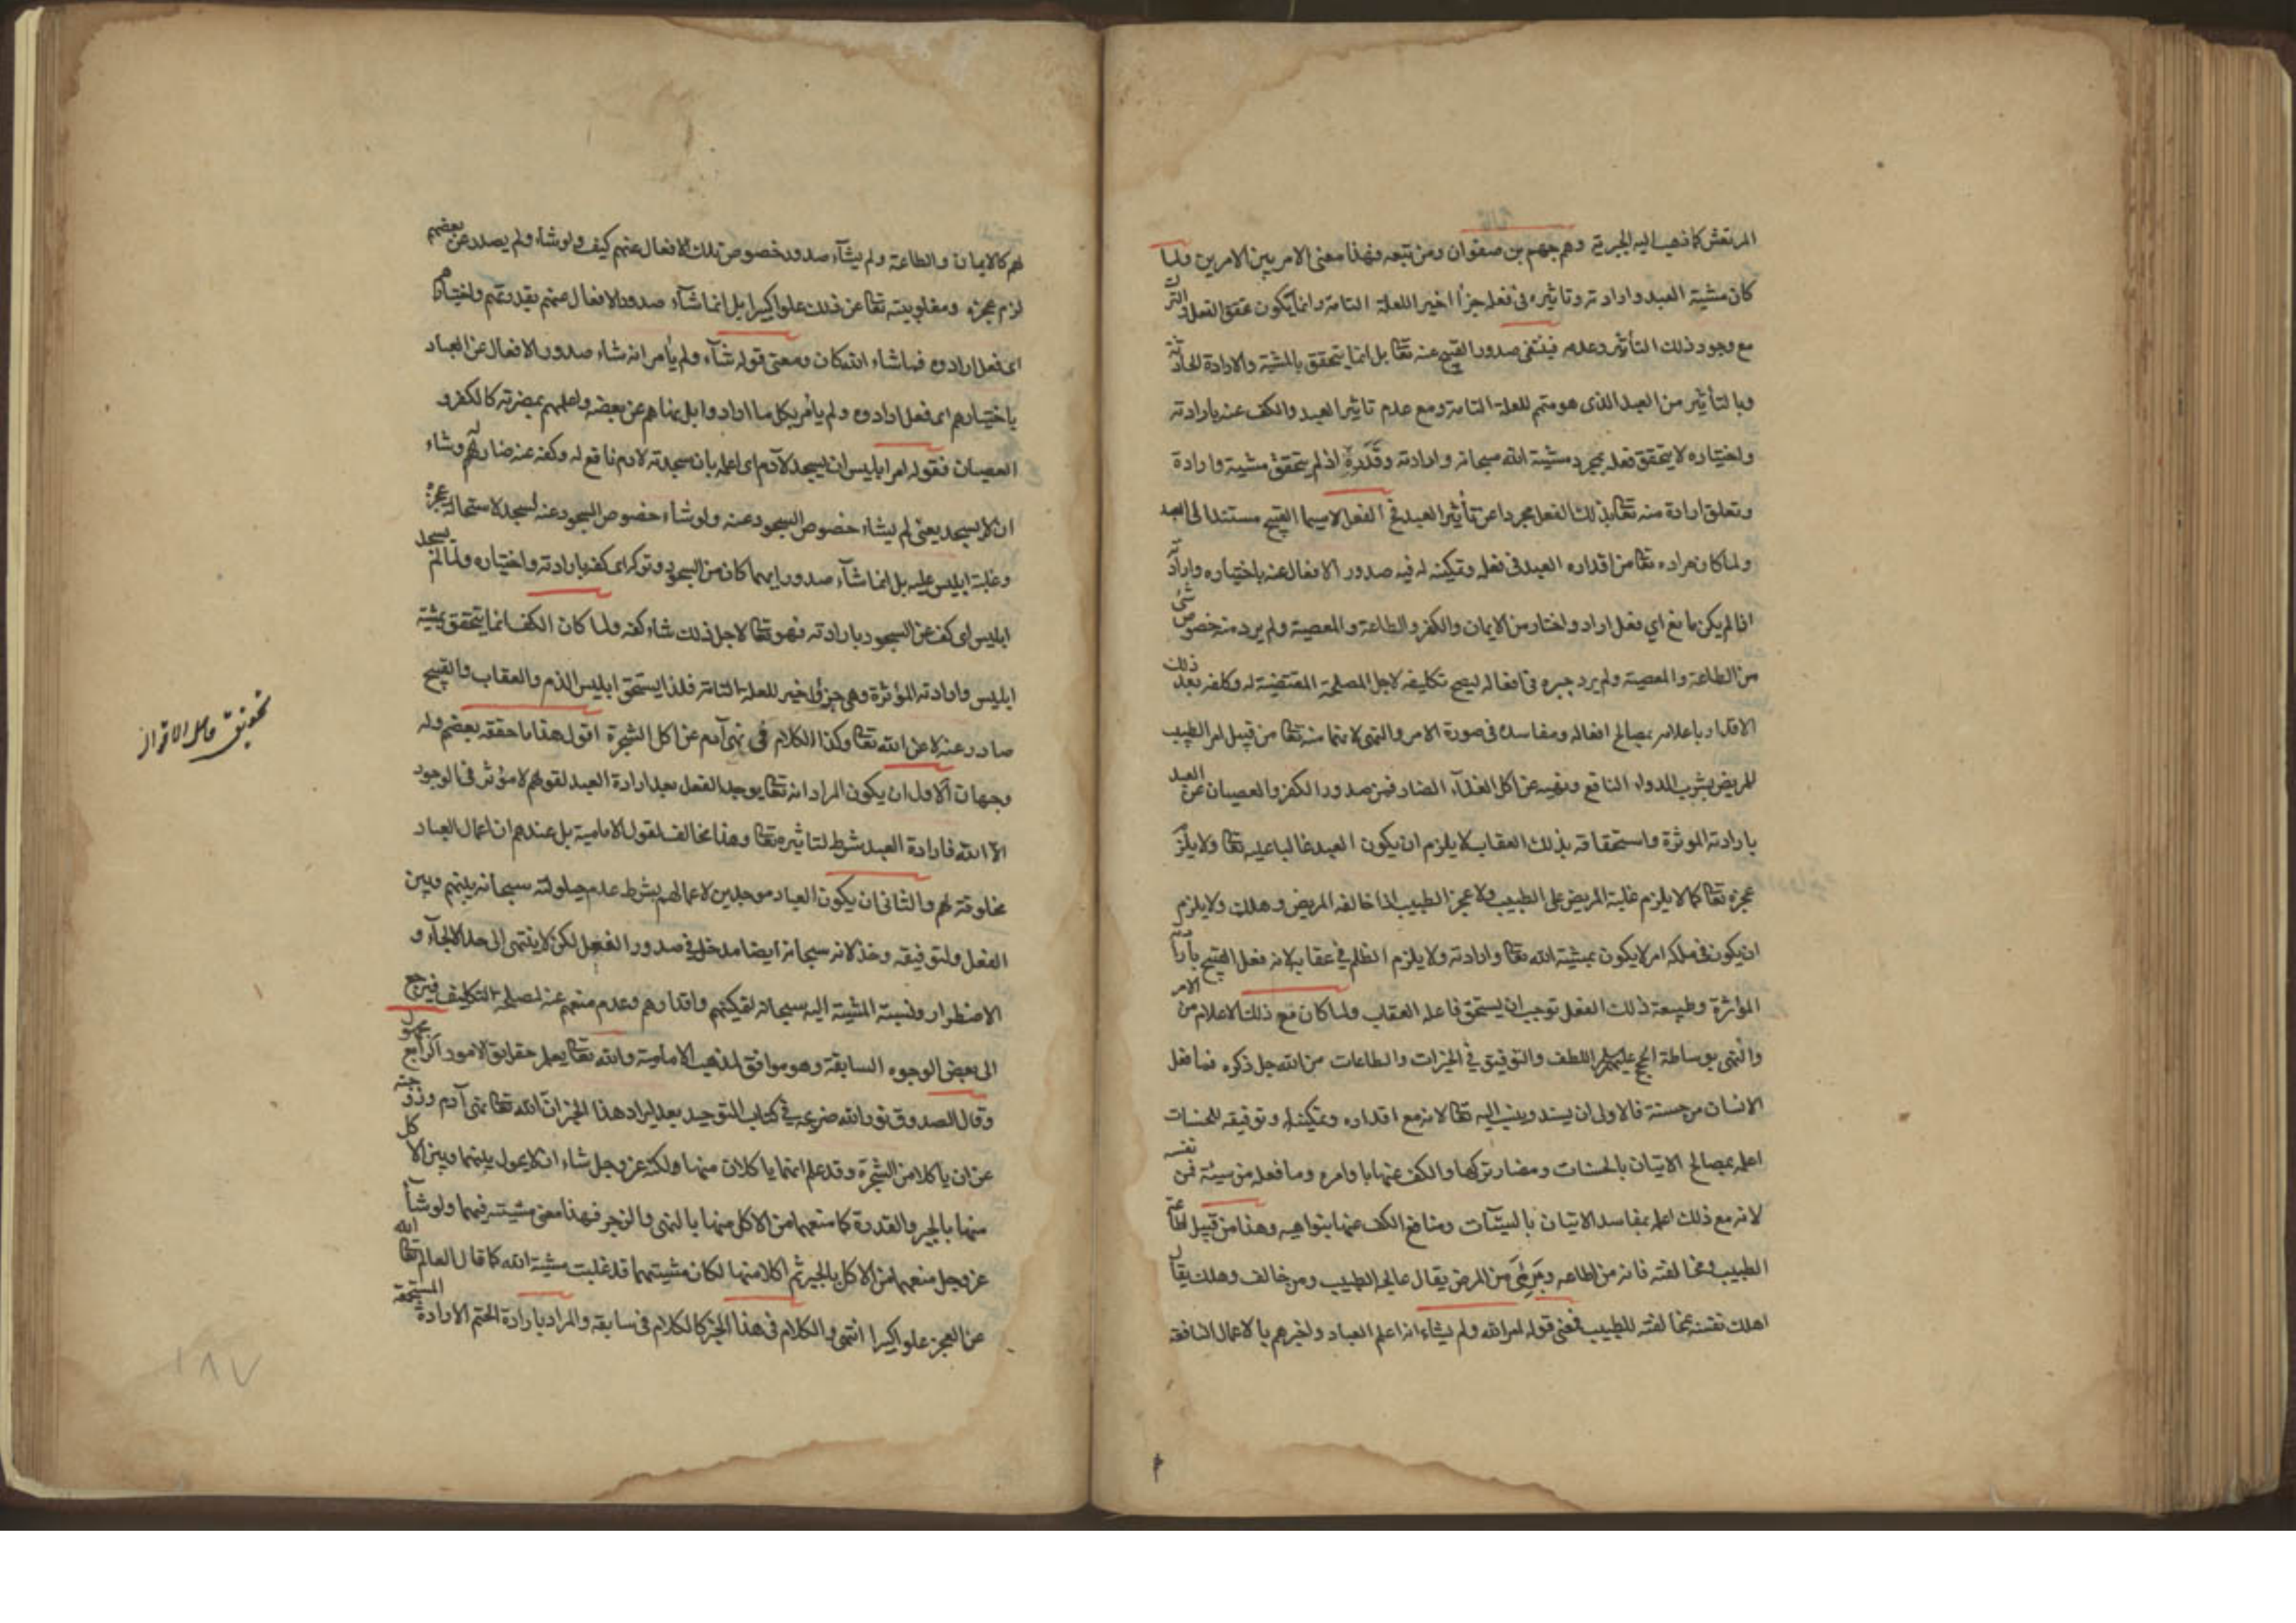 المرتعش كما ذهب اليه الجبرية وهم جهم بن صفوان ومن تبعه فهذا معنى الامر بين الامرين ولما
كان مشية العبد وارادته وتاثيره فى فعله جزأ اخير اللعلة التامة وانما يكون تحقق الفعل والترك
مع وجود ذلك التأثير وعدمه فينتفى صدور القبيح عنه تعالى بل انما يتحقق بالمشية والارادة الحادثة
وبالتأثير من العبد الذى هو متمم للعلة التامة ومع عدم تاثير العبد والكف عنه بارادته
واختياره لا يتحقق فعله بمجرد مشية الله سبحانه وارادته وقدره اذ لم يتحقق مشية وارادة
وتعلق ارادة منه تعالى بذلك الفعل مجردا عن تأثير العبد فح الفعل لاسيما القبيح مستند الى العبد
ولما كان مراده تعالى من اقداره العبد فى فعله وتمكينه له فيه صدور الافعال عنه باختياره وارادته
اذا لم يكن مانع اي فعل اراد واختار من الايمان والكفر والطاعة والمعصية ولم يرد منه خصوص شئ
من الطاعة والمعصية ولم يرد جبره فى افعاله ليصح تكليفه لاجل المصلحة المقتضية له وكلفه بعد ذلك
الاقدار باعلامه بمصالح افعاله ومفاسده فى صورة الامر والنهى لانهما منه تعالى من قبيل امر الطبيب
للمريض بشرب الدواء النافع ونهيه عن اكل الغذآء الضار فمن صدور الكفر والعصيان عن العبد
بارادته الموثرة واستحقاقه بذلك العقاب لا يلزم ان يكون العبد غالبا عليه تعالى ولا يلزم
عجزه تعالى كما لا يلزم غلبة المريض على الطبيب ولا عجز الطبيب اذا خالفه المريض وهلك ولا يلزم
ان يكون فى ملكه امر لا يكون بمشية الله تعالى وارادته ولا يلزم الظلم في عقابه لانه فعل القبيح بارادته
المؤثرة وطبيعة ذلك الفعل توجب ان يستحق فاعله العقاب ولما كان مع ذلك الاعلام من الامر
والنهى بوساطة الحجج عليهم السلم اللطف والتوفيق في الخيرات والطاعات من الله جل ذكره فما فعل
الانسان من حسنة فالاولى ان يسند وينسب اليه تعالى لانه مع اقداره وتمكينه له وتوفيقه للحسنات
اعلمه بمصالح الاتيان بالحسنات ومضار تركها والكف عنها باوامره وما فعله من سيئة فمن نفسه
لانه مع ذلك اعلمه بمفاسد الاتيان بالسيئات ومنافع الكف عنها بنواهيه وهذا من قبيل اطاعة
الطبيب ومخالفته فانه من اطاعه وبرئ من المرض يقال عالجه الطبيب ومن خالف وهلك يقال
اهلك نفسه بمخالفته للطبيب فمعنى قوله امر الله ولم يشاء انه اعلم العباد واخبرهم بالاعمال النافعة
لهم كالايمان والطاعة ولم يشآء صدور خصوص تلك الافعال عنهم كيف ولو شاء ولم يصدر عن بعضهم
لزم عجزه ومغلوبيته تعالى عن ذلك علوا كبيرا بل انما شآء صدور الافعال عنهم بقدرتهم واختيارهم
اى فعل ارادوه فما شاء الله كان ومعنى قوله شآء ولم يأمر انه شاء صدور الافعال عن العباد
باختيارهم اى فعل ارادوه ولم يأمر بكل ما ارادوا بل نهاهم عن بعضه واعلمهم بمضرته كالكفر و
العصيان فقوله امر ابليس ان يسجد لآدم اى اعلمه بان سجدته لادم نافع له وكفه عنه ضار له وشاء
ان لا يسجد يعنى لم يشاء خصوص السجود عنه ولو شاء خصوص السجود عنه لسجد لاستحالة عجزه
وغلبة ابليس عليه بل انما شآء صدور ايهما كان من السجود وتركه اى كفه بارادته واختياره ولما لم يسجد
ابليس اى كف عن السجود بارادته فهو تعالى لاجل ذلك شاء كفه ولما كان الكف انما يتحقق بمشية
ابليس وارادته المؤثرة وهى جزؤ اخير للعلة التامة فلذا يستحق ابليس الذم والعقاب والقبيح
صادر عنه لا عن الله تعالى وكذا الكلام فى نهى آدم عن اكل الشجرة اقول هذا ما حققه بعضهم وله
وجهات الاول ان يكون المراد انه تعالى يوجد الفعل بعد ارادة العبد لقولهم لا مؤثر فى الوجود
الا الله فارادة العبد شرط لتاثيره تعالى وهذا مخالف لقول الامامية بل عندهم ان اعمال العباد
مخلوقة لهم والثانى ان يكون العباد موجدين لاعمالهم بشرط عدم حيلولته سبحانه بينهم وبين
الفعل ولتوفيقه وخذلانه سبحانه ايضا مدخل في صدور الفعل لكن لا ينتهى الى حد الالجآء و
الاضطرار ونسبة المشية اليه سبحانه لتمكينهم واقدارهم وعدم منعهم عنه لمصلحة التكليف فيرجع
الى بعض الوجوه السابقة وهو موافق لمذهب الامامية والله تعالى يعلم حقايق الامور الرابع مجهول
وقال الصدوق نور الله ضريحه في كتاب التوحيد بعد ايراد هذا الخبر ان الله تعالى نهى آدم وزوجته
عن ان ياكلا من الشجرة وقد علم انهما ياكلان منها ولكنه عز وجل شاء ان لا يحول بينهما وبين الاكل
منها بالجبر والقدرة كما منعهما من الاكل منها بالنهى والزجر فهذا معنى مشيته فيهما ولو شآء
عز وجل منعهما من الاكل بالجبر ثم اكلا منها لكان مشيتهما قد غلبت مشية الله كما قال العالم تعالى الله
عن العجز علوا كبيرا انتهى والكلام فى هذا الخبر كالكلام فى سابقه والمراد بارادة الحتم الارادة المستجمعة
١٨٧